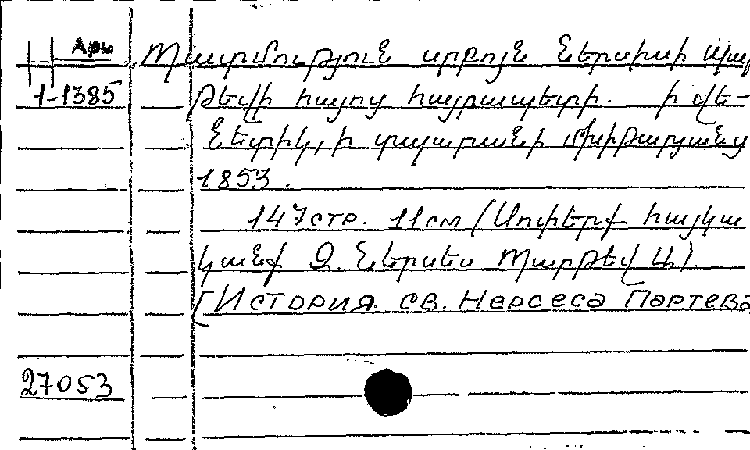 Арм
1-1385
Պատմութիւն սրբոյն Ներսիսի պար
թեվի հայոց հայրապետի. ի վե-
նետիկ, ի տպարանի մխիթարյանց
1853.
147 стр. 11 см (Սոփերք հայկա
կանք Զ. Ներսես Պարթեվ Ա).
[История св. Нерсеса Партева
27053